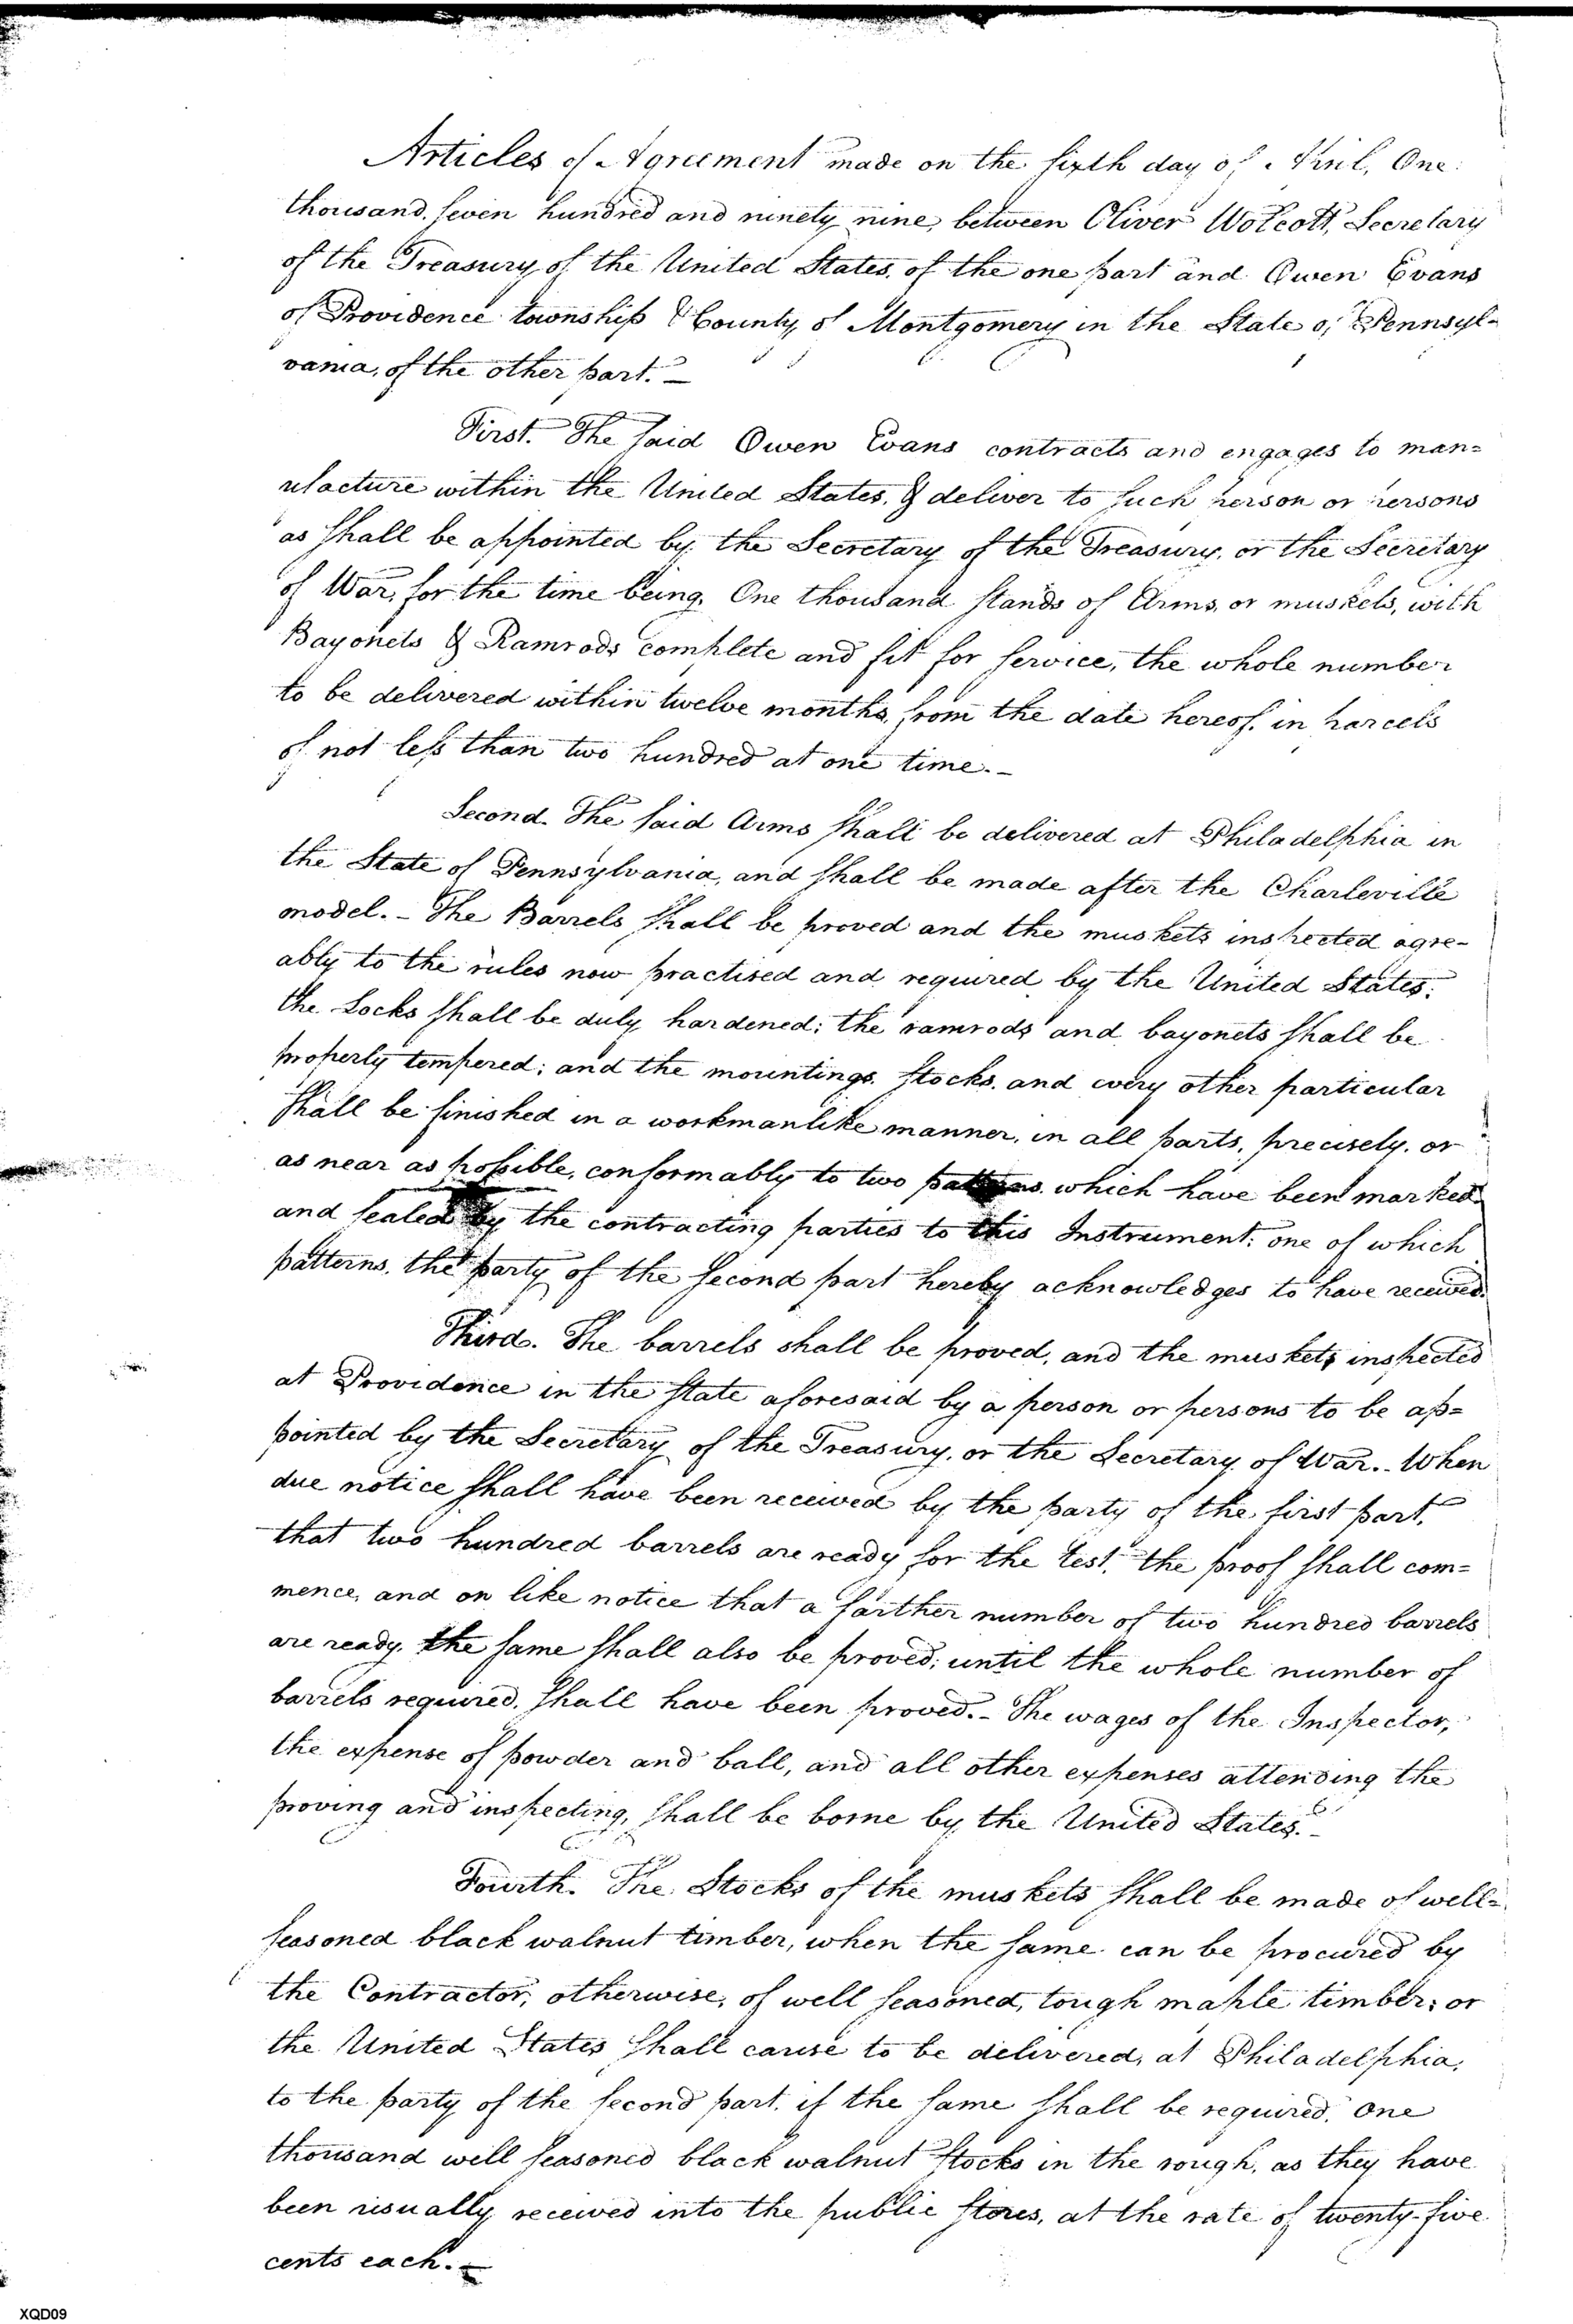 Articles of Agreement made on the sixth day of April, One
thousand, seven hundred and ninety nine, between Oliver Wolcott, Secretary
of the Treasury of the United States, of the one part and Owen Evans
of Providence township & County of Montgomery in the State of Pennsyl-
vania, of the other part. —
First. The said Owen Evans contracts and engages to man=
ufacture within the United States, & deliver to such person or persons
as shall be appointed by the Secretary of the Treasury, or the Secretary
of War, for the time being, One thousand stands of Arms, or muskets, with
Bayonets & Ramrods complete and fit for service, the whole number
to be delivered within twelve months, from the date hereof, in parcels
of not less than two hundred at one time. -
Second. The said Arms shall be delivered at Philadelphia in
the State of Pennsylvania, and shall be made after the Charleville
model. - The Barrels shall be proved and the muskets inspected agre-
ably to the rules now practised and required by the United States;
the Locks shall be duly hardened; the ramrods and bayonets shall be
properly tempered; and the mountings, stocks, and every other particular
shall be finished in a workmanlike manner, in all parts, precisely, or
as near as possible, conformably to two patterns, which have been marked
and sealed by the contracting parties to this Instrument; one of which
patterns, the party of the second part hereby acknowledges to have received.
Third. The barrels shall be proved, and the muskets inspected
at Providence in the State aforesaid by a person or persons to be ap=
pointed by the Secretary of the Treasury, or the Secretary of War. - When
due notice shall have been received by the party of the first part,
that two hundred barrels are ready for the test, the proof shall com=
mence, and on like notice that a farther number of two hundred barrels
are ready, the same shall also be proved; until the whole number of
barrels required, shall have been proved. - The wages of the Inspector,
the expense of powder and ball, and all other expenses attending the
proving and inspecting, shall be borne by the United States. -
Fourth. The Stocks of the muskets shall be made of well=
seasoned black walnut timber, when the same can be procured by
the Contractor, otherwise, of well seasoned, tough maple timber; or
the United States shall cause to be delivered, at Philadelphia,
to the party of the second part, if the same shall be required, one
thousand well seasoned black walnut stocks in the rough, as they have
been usually received into the public stores, at the rate of twenty-five
cents each. —
XQD09